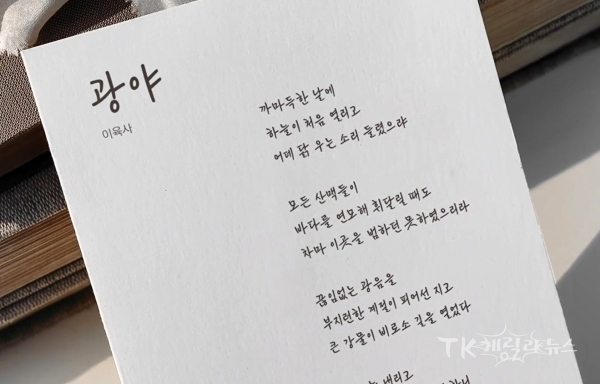 광야
이육사
까마득한 날에
하늘이 처음 열리고
어데 닭 우는 소리 들렸으랴
모든 산맥들이
바다를 연모해 휘달릴 때도
차마 이곳을 범하던 못하였으리라
끊임없는 광음을
부지런한 계절이 피어선 지고
큰 강물이 비로소 길을 열었다
내리고
TK케릴라뉴스